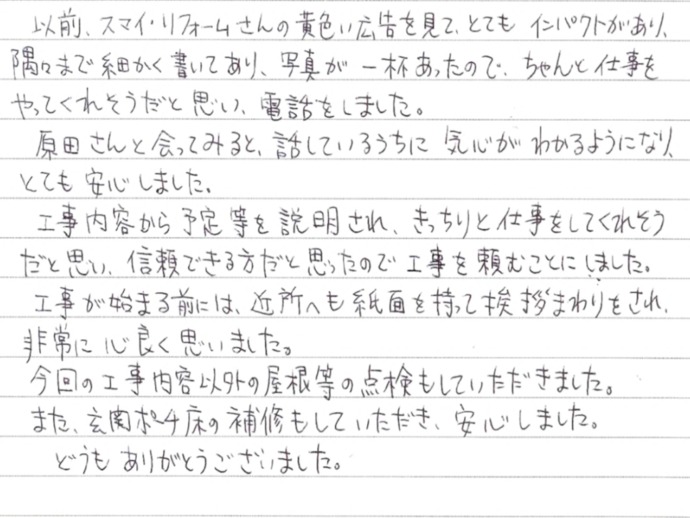 以前、スマイ・リフォームさんの黄色い広告を見て、とても インパクトがあり、
隅々まで細かく書いてあり、写真が一杯あったので、ちゃんと仕事を
やってくれそうだと思い、電話をしました。
原田さんと会ってみると、話しているうちに 気心が わかるようになり、
とても 安心しました。
工事内容から予定等を説明され、きっちりと仕事をしてくれそう
だと思い、信頼できる方だと思ったので工事を頼むことにしました。
工事が始まる前には、近所へも紙面を持って挨拶まわりをされ、
非常に心良く思いました。
今回の工事内容以外の屋根等の点検もしていただきました。
また、玄関ポーチ床の補修もしていただき、安心しました。
どうも ありがとうございました。